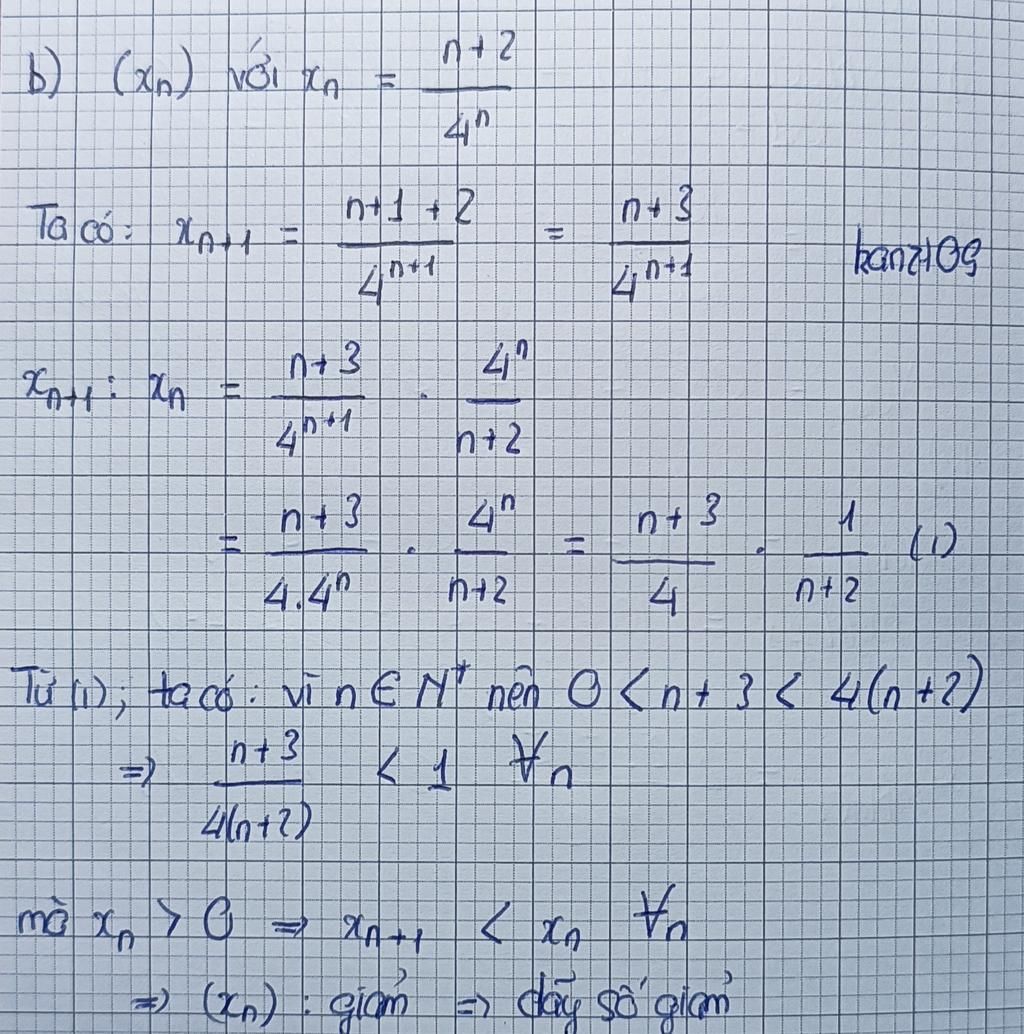 b) (xₙ) với xₙ = (n+2)/4ⁿ
Ta có: xₙ₊₁ = (n+1+2)/4ⁿ⁺¹ = (n+3)/4ⁿ⁺¹
xₙ₊₁ : xₙ = (n+3)/4ⁿ⁺¹ . 4ⁿ/(n+2)
= (n+3)/(4.4ⁿ) . 4ⁿ/(n+2) = (n+3)/4 . 1/(n+2) (1)
Từ (1); ta có: vì n ∈ N⁺ nên 0 < n+3 < 4(n+2)
=> (n+3)/(4(n+2)) < 1 ∀n
mà xₙ > 0 => xₙ₊₁ < xₙ ∀n
=> (xₙ): giảm => dãy số giảm